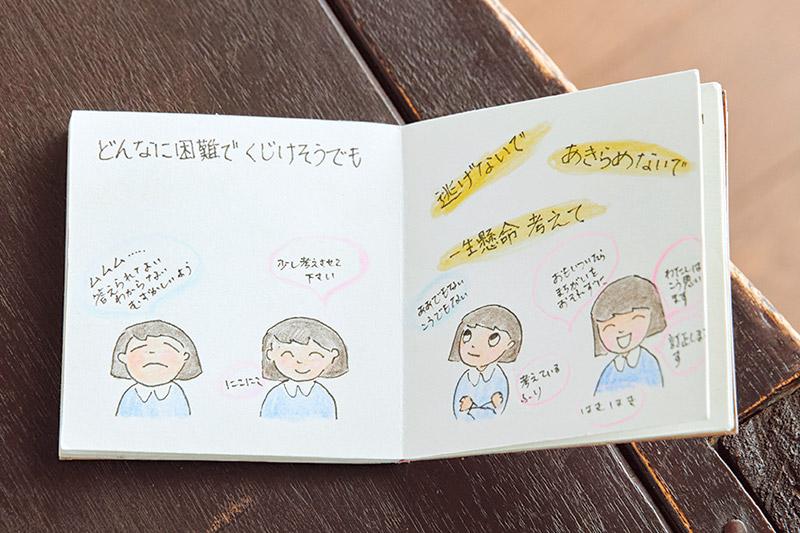 どんなに困難で くじけそうでも
ムムム……
答えられてない
わからない
むずかしいよう
少し考えさせて
下さい
にこにこ
逃げないで
あきらめないで
一生懸命 考えて
ああでもない
こうでもない
考えている
ふ〜り
おもいついたら
まちがいを
おそれずに
わたしは
こう思い
ます
訂正しま
す
はきはき